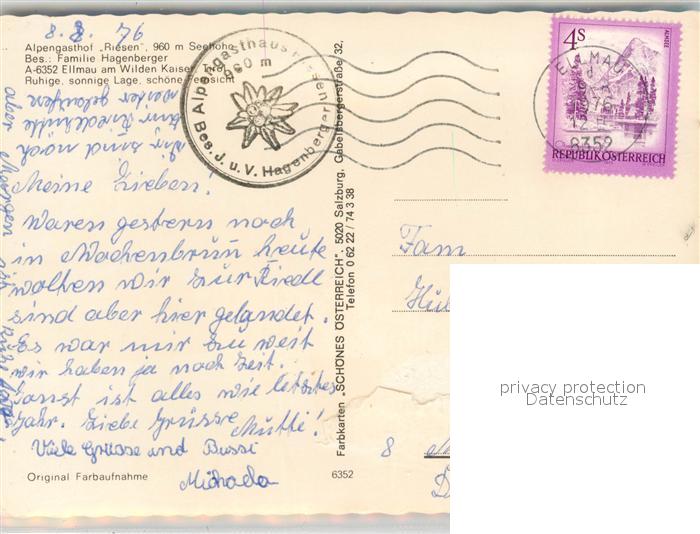 8.8.76
Alpengasthof „Riesen", 960 m Seehöhe
Bes.: Familie Hagenberger
A-6352 Ellmau am Wilden Kaiser, Tirol
Ruhige, sonnige Lage, schöne Fernsicht
Meine Lieben!
Waren gestern noch
in Wochenbrunn heute
wollten wir zur Riedl
sind aber hier gelandet.
Es war mir zu weit
wir haben ja noch Zeit.
Sonst ist alles wie letztes
Jahr. Liebe Grüsse
Mutti!
Viele Grüsse und Bussi
Michaela
wir sind noch
zur Riedlhütte
weiter gelaufen
aber Morgen
Original Farbaufnahme
6352
Alpengasthaus Riesen
960 m
Bes. J. u. V. Hagenberger
Farbkarten „SCHÖNES ÖSTERREICH", 5020 Salzburg, Gabelsbergerstraße 32,
Telefon 0 62 22 / 74 3 38
4S
ALMSEE
REPUBLIK ÖSTERREICH
ELLMAU
6352
Fam
8
privacy protection
Datenschutz